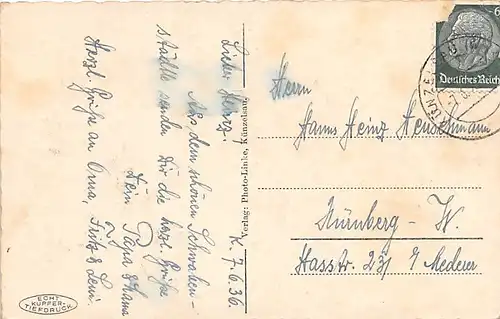 K. 7.6.36.
Lieber Heinz!
Aus dem schönen Schwaben-
städtle senden Dir die herzl. Grüße
Dein Papa & Mama
Herzl. Grüße an Oma, Fritz & Leni.
Verlag: Photo-Linke, Künzelsau.
ECHT
KUPFER-
TIEFDRUCK
6
Deutsches Reich
Herrn
Hanns Heinz
Nürnberg - W.
Hasstr. 23/ Mederer